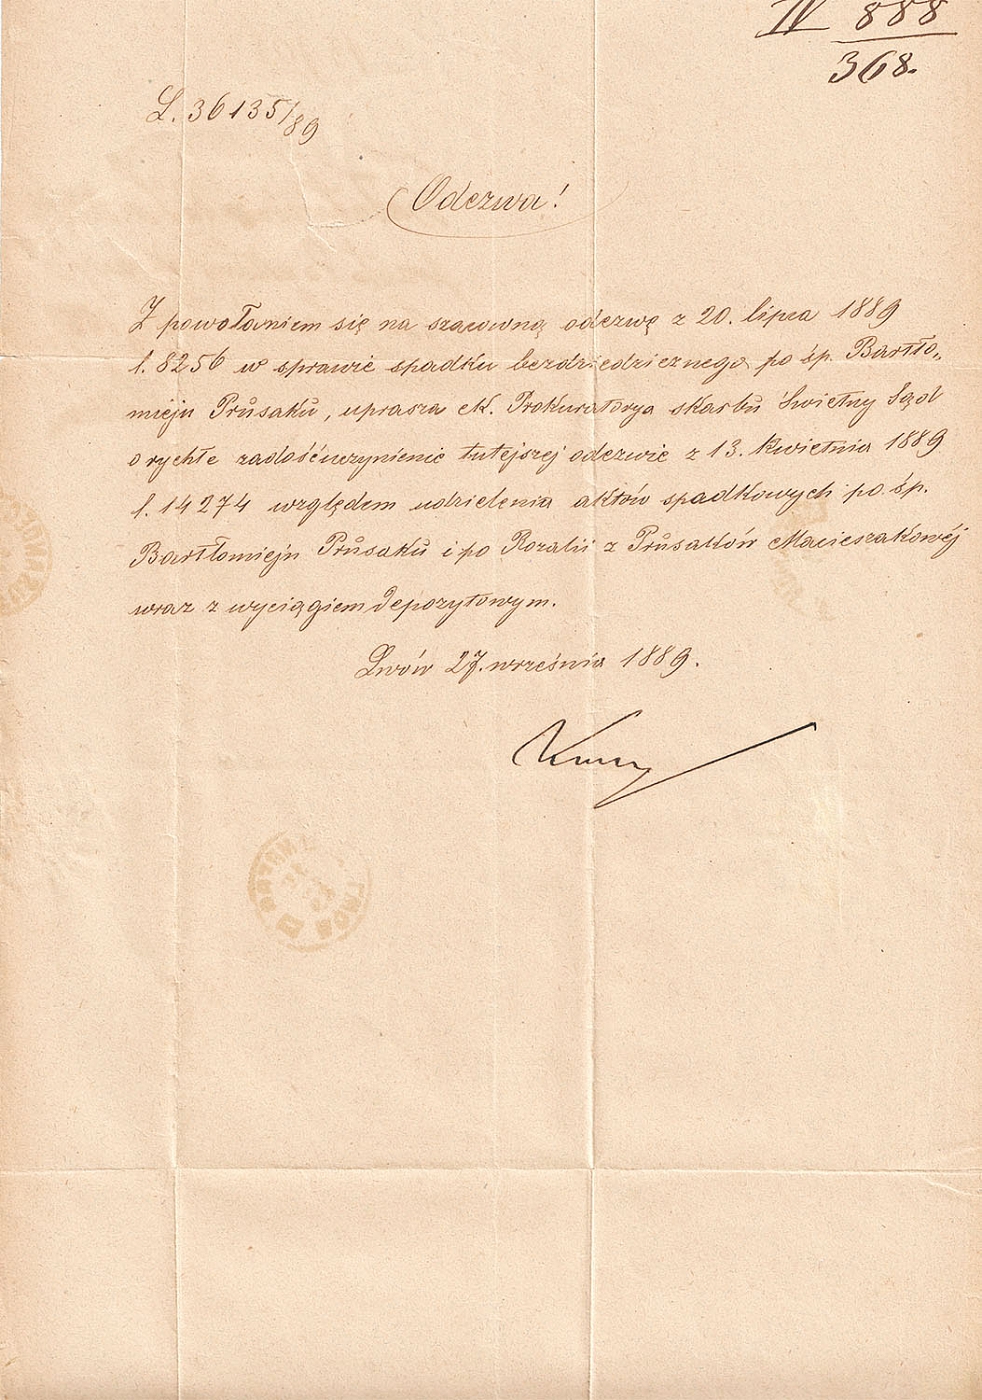 IV 888
368.
L. 36135/89
Odezwa!
Z powołaniem się na szacowną odezwę z 20. lipca 1889
l. 8256 w sprawie spadku bezdziedzicznego po śp. Bartło„
mieju Průsaku, uprasza ck. Prokuratorya skarbu Świetny Sąd
o rychłe zadośćuczynienie tutejszej odezwie z 13. kwietnia 1889
l. 14274 względem udzielenia aktów spadkowych po śp.
Bartłomieju Průsaku i po Rozalii z Průsaków Macieszakowéj
wraz z wyciągiem depozytowym.
Lwów 27. września 1889.